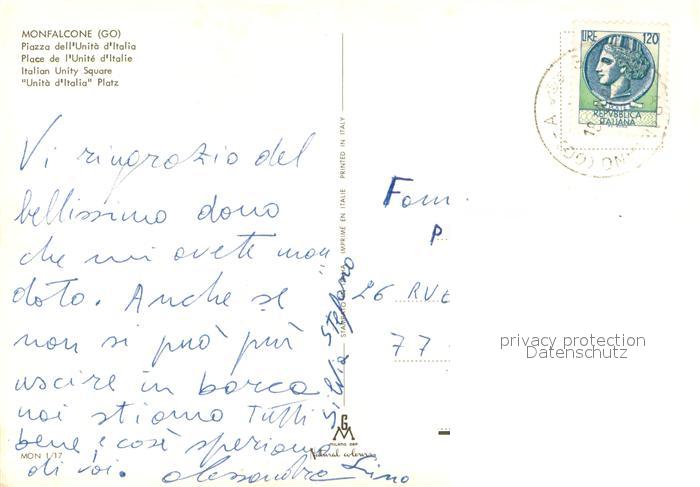 MONFALCONE (GO)
Piazza dell'Unità d'Italia
Place de l'Unité d'Italie
Italian Unity Square
"Unità d'Italia" Platz
Vi ringrazio del
bellissimo dono
che mi avete man
dato. Anche se
non si può più
uscire in barca
noi stiamo tutti
bene e così speriamo
di voi. Alessandra Lino
Silvia Stefano
MON 1/17
IMPRIMÉ EN ITALIE PRINTED IN ITALY
GM
MILANO
Natural
LIRE 120
REPVBBLICA
ITALIANA
Fam.
P
26 RUE
77
privacy protection
Datenschutz